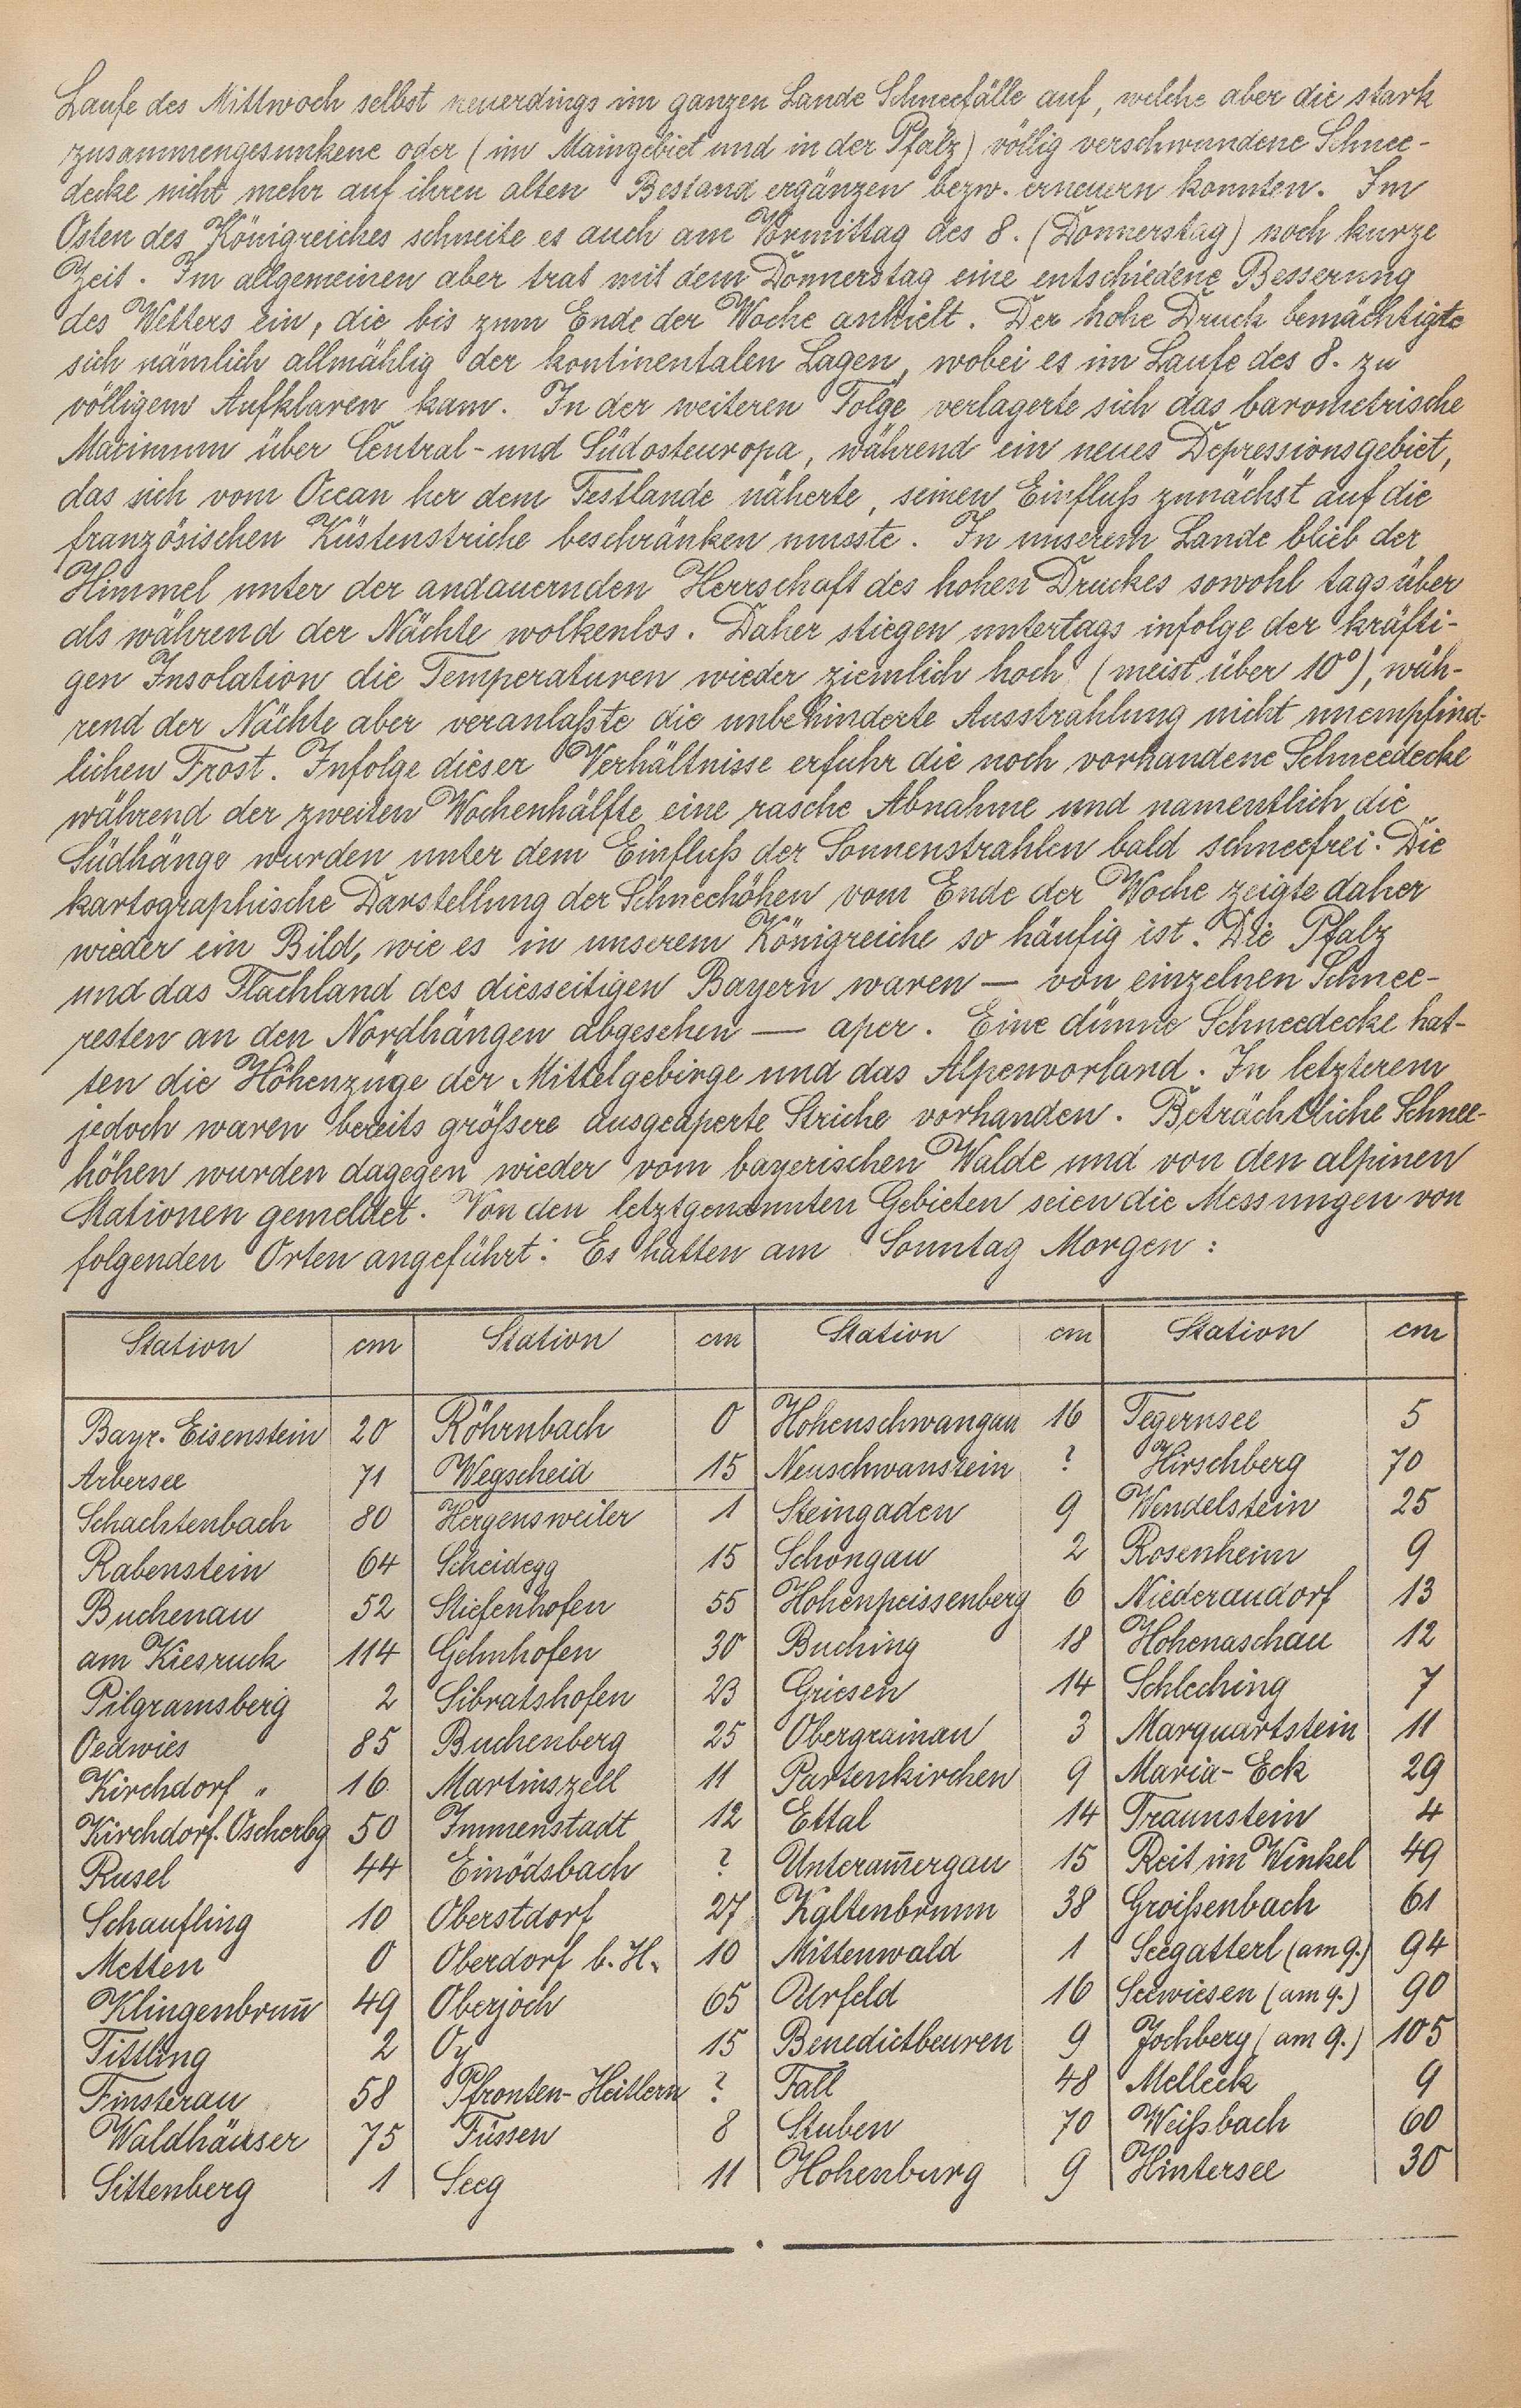 Laufe des Mittwoch selbst neuerdings im ganzen Lande Schneefälle auf, welche aber die stark
zusammengesunkene oder (im Maingebiet und in der Pfalz) völlig verschwundene Schnee-
decke nicht mehr auf ihren alten Bestand ergänzen bezw. erneuern konnten. Im
Osten des Königreiches schneite es auch am Vormittag des 8. (Donnerstag) noch kurze
Zeit. Im allgemeinen aber trat mit dem Donnerstag eine entschiedene Besserung
des Wetters ein, die bis zum Ende der Woche anhielt. Der hohe Druck bemächtigte
sich nämlich allmählig der kontinentalen Lagen, wobei es im Laufe des 8. zu
völligem Aufklaren kam. In der weiteren Folge verlagerte sich das barometrische
Maximum über Central- und Südosteuropa, während ein neues Depressionsgebiet,
das sich vom Ocean her dem Festlande näherte, seinen Einfluß zunächst auf die
französischen Küstenstriche beschränken musste. In unserem Lande blieb der
Himmel unter der andauernden Herrschaft des hohen Druckes sowohl tags über
als während der Nächte wolkenlos. Daher stiegen untertags infolge der kräfti-
gen Insolation die Temperaturen wieder ziemlich hoch (meist über 10°), wäh-
rend der Nächte aber veranlaßte die unbehinderte Ausstrahlung nicht unempfind-
lichen Frost. Infolge dieser Verhältnisse erfuhr die noch vorhandene Schneedecke
während der zweiten Wochenhälfte eine rasche Abnahme und namentlich die
Südhänge wurden unter dem Einfluß der Sonnenstrahlen bald schneefrei. Die
kartographische Darstellung der Schneehöhen vom Ende der Woche zeigte daher
wieder ein Bild, wie es in unserem Königreiche so häufig ist. Die Pfalz
und das Flachland des diesseitigen Bayern waren — von einzelnen Schnee-
resten an den Nordhängen abgesehen — aper. Eine dünne Schneedecke hat-
ten die Höhenzüge der Mittelgebirge und das Alpenvorland. In letzterem
jedoch waren bereits größere ausgeaperte Striche vorhanden. Beträchtliche Schnee-
höhen wurden dagegen wieder vom bayerischen Walde und von den alpinen
Stationen gemeldet. Von den letztgenannten Gebieten seien die Messungen von
folgenden Orten angeführt: Es hatten am Sonntag Morgen:
Station cm Station cm Station cm Station cm
Bayr. Eisenstein 20 Röhrnbach 0 Hohenschwangau 16 Tegernsee 5
Arbersee 71 Wegscheid 15 Neuschwanstein ? Hirschberg 70
Schachtenbach 80 Hergensweiler 1 Steingaden 9 Wendelstein 25
Rabenstein 64 Scheidegg 15 Schongau 2 Rosenheim 9
Buchenau 52 Stiefenhofen 55 Hohenpeissenberg 6 Niederaudorf 13
am Kiesruck 114 Gehnhofen 30 Buching 18 Hohenaschau 12
Pilgramsberg 2 Sibratshofen 23 Griesen 14 Schleching 7
Oedwies 85 Buchenberg 25 Obergrainau 3 Marquartstein 11
Kirchdorf „ 16 Martinszell 11 Partenkirchen 9 Maria-Eck 29
Kirchdorf. Oscherbg 50 Immenstadt 12 Ettal 14 Traunstein 4
Rusel 44 Einödsbach ? Unteram̅ergau 15 Reit im Winkel 49
Schaufling 10 Oberstdorf 27 Kaltenbrunn 38 Groißenbach 61
Metten 0 Oberdorf b. H. 10 Mittenwald 1 Seegatterl (am 9.) 94
Klingenbrun̅ 49 Oberjoch 65 Urfeld 16 Seewiesen (am 9.) 90
Tittling 2 Oy 15 Benedictbeuren 9 Jochberg (am 9.) 105
Finsterau 58 Pfronten-Heitlern ? Fall 48 Melleck 9
Waldhäuser 75 Füssen 8 Stuben 70 Weißbach 60
Sittenberg 1 Seeg 11 Hohenburg 9 Hintersee 30